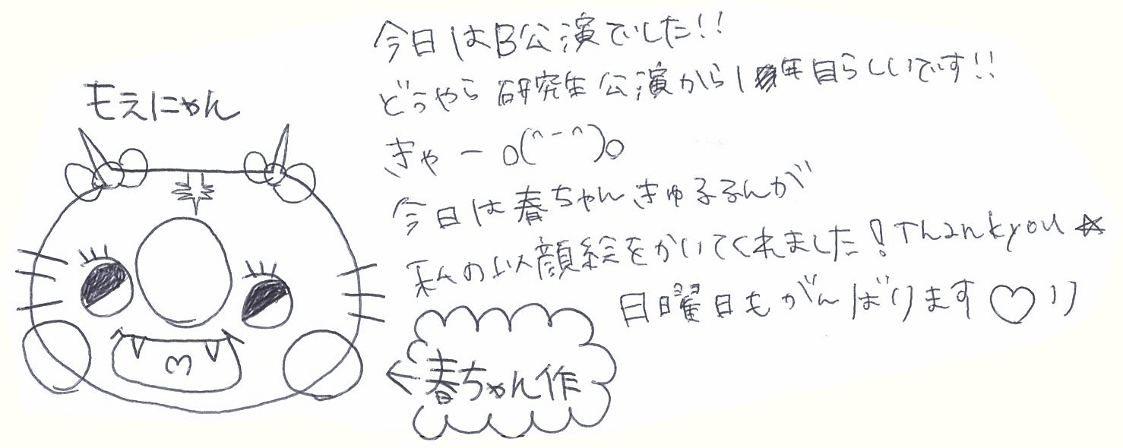 今日はB公演でした!!
どうやら研究生公演から1年目らしいです!!
きゃー o(^-^)o
今日は春ちゃんきゅるるんが
私の似顔絵をかいてくれました! Thankyou☆
日曜日もがんばります♡))
もえにゃん
←春ちゃん作